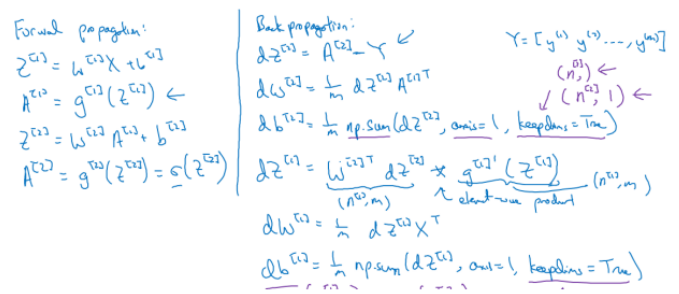 Forward propagation:
Z^[1] = W^[1] X + b^[1]
A^[1] = g^[1](Z^[1]) ←
Z^[2] = W^[2] A^[1] + b^[2]
A^[2] = g^[2](Z^[2]) = σ(Z^[2])
Back propagation:
dZ^[2] = A^[2] - Y ↙
dW^[2] = 1/m dZ^[2] A^[1]T
db^[2] = 1/m np.sum(dZ^[2], axis=1, keepdims=True)
dZ^[1] = W^[2]T dZ^[2] * g^[1]'(Z^[1])
(n^[1], m) element-wise product (n^[1], m)
dW^[1] = 1/m dZ^[1] X^T
db^[1] = 1/m np.sum(dZ^[1], axis=1, keepdims=True)
Y = [y^(1) y^(2) ..., y^(m)]
(n^[1],) ←
(n^[2], 1) ←